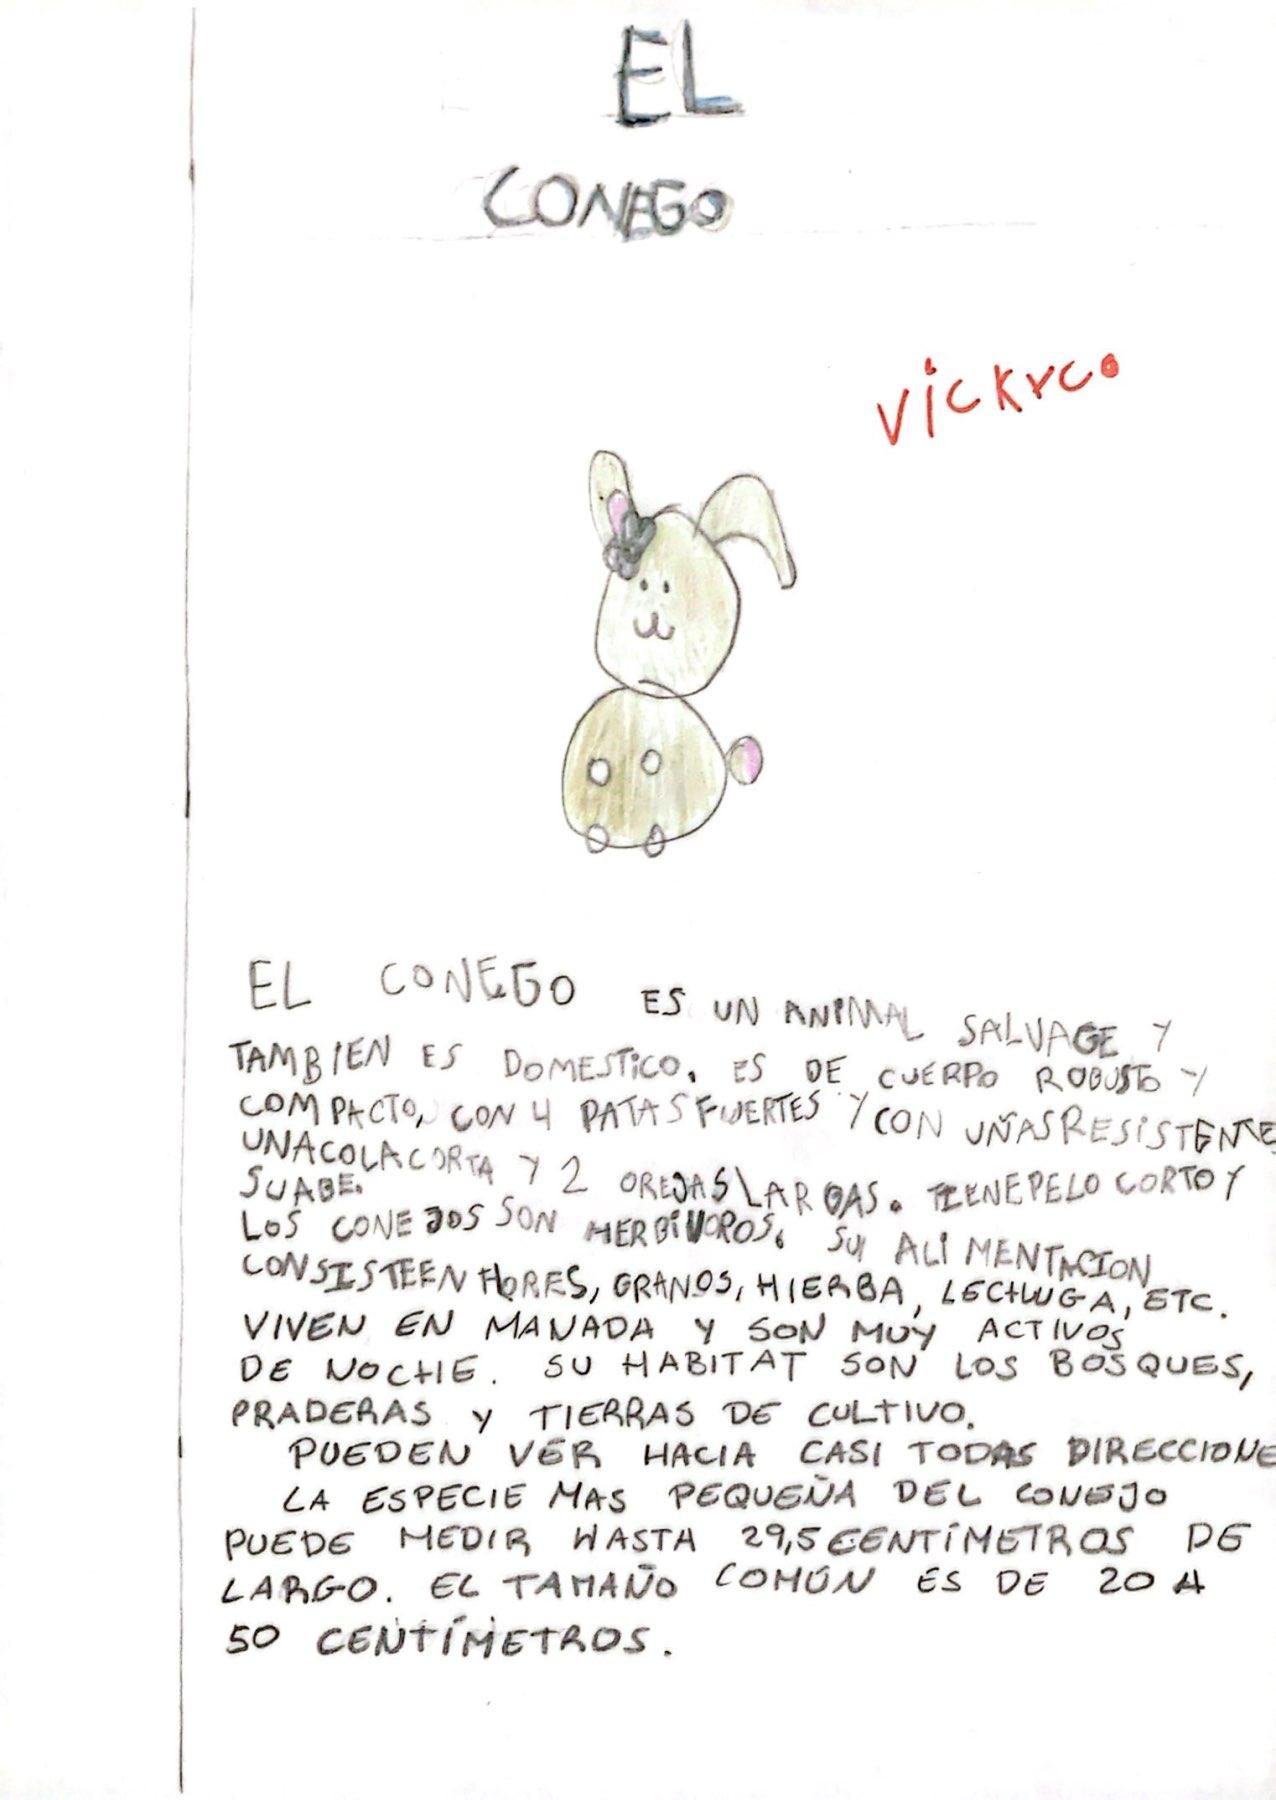 EL
CONEGO
VICKYCO
EL CONEGO ES UN ANIMAL SALVAGE Y
TAMBIEN ES DOMESTICO. ES DE CUERPO ROBUSTO Y
COMPACTO, CON 4 PATAS FUERTES Y CON UÑAS RESISTENTE
UNA COLA CORTA Y 2 OREJAS LARGAS. TIENE PELO CORTO Y
SUABE.
LOS CONEJOS SON HERBÍVOROS. SU ALIMENTACION
CONSISTE EN FLORES, GRANOS, HIERBA, LECHUGA, ETC.
VIVEN EN MANADA Y SON MUY ACTIVOS
DE NOCHE. SU HABITAT SON LOS BOSQUES,
PRADERAS Y TIERRAS DE CULTIVO.
PUEDEN VER HACIA CASI TODAS DIRECCIONE
LA ESPECIE MAS PEQUEÑA DEL CONEJO
PUEDE MEDIR HASTA 29,5 CENTÍMETROS DE
LARGO. EL TAMAÑO COMÚN ES DE 20 A
50 CENTÍMETROS.